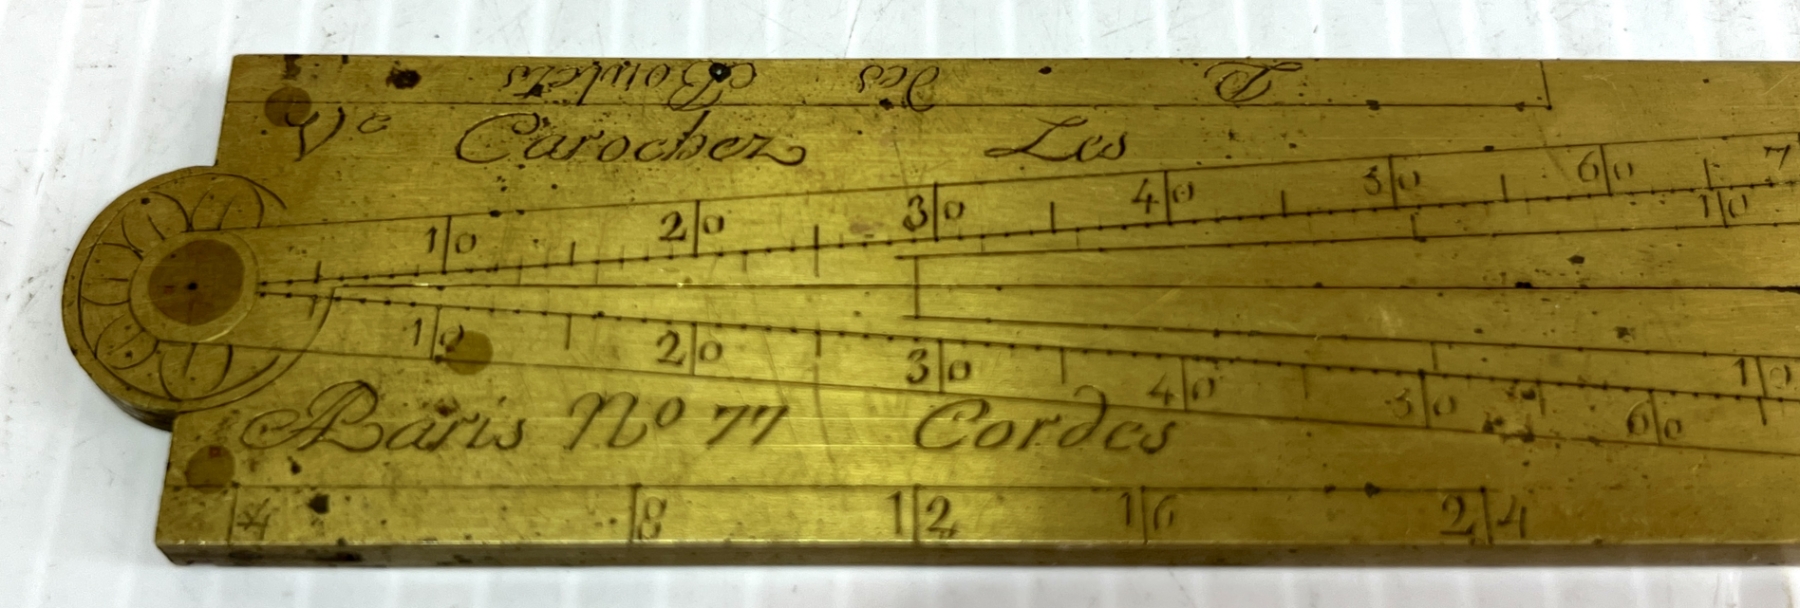 P. des Boulets
Ve Carochez Les
10 20 30 40 50 60 7
10
10
10 20 30 40 50 60
Paris No 77 Cordes
4 8 12 16 24